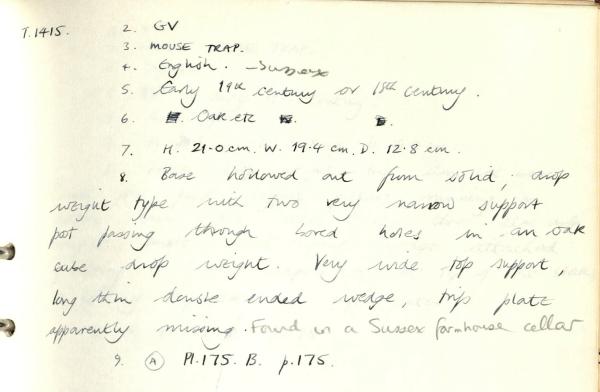 T.1415. 2. GV
3. MOUSE TRAP.
4. English. - Sussex
5. Early 19th century or 18th century.
6. Oak etc
7. H. 21.0 cm. W. 19.4 cm. D. 12.8 cm.
8. Base hollowed out from solid; drop
weight type with two very narrow support
pot passing through bored holes in an oak
cube drop weight. Very wide top support,
long thin double ended wedge, trip plate
apparently missing. Found in a Sussex farmhouse cellar
9. A Pl.175. B. p.175.